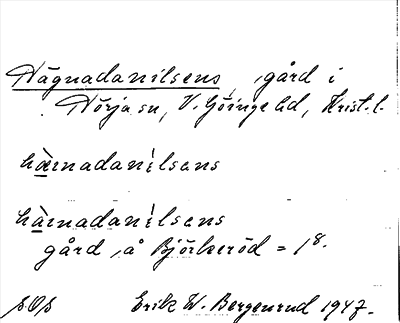 Hägnadanilsens, gård i
Norja sn, V. Göinge hd, Krist. l.
hä̀rnadanilsens
hà̱rnadanilsens
gård å Björkeröd = 1⁸.
Erik W. Bergenrud 1947.